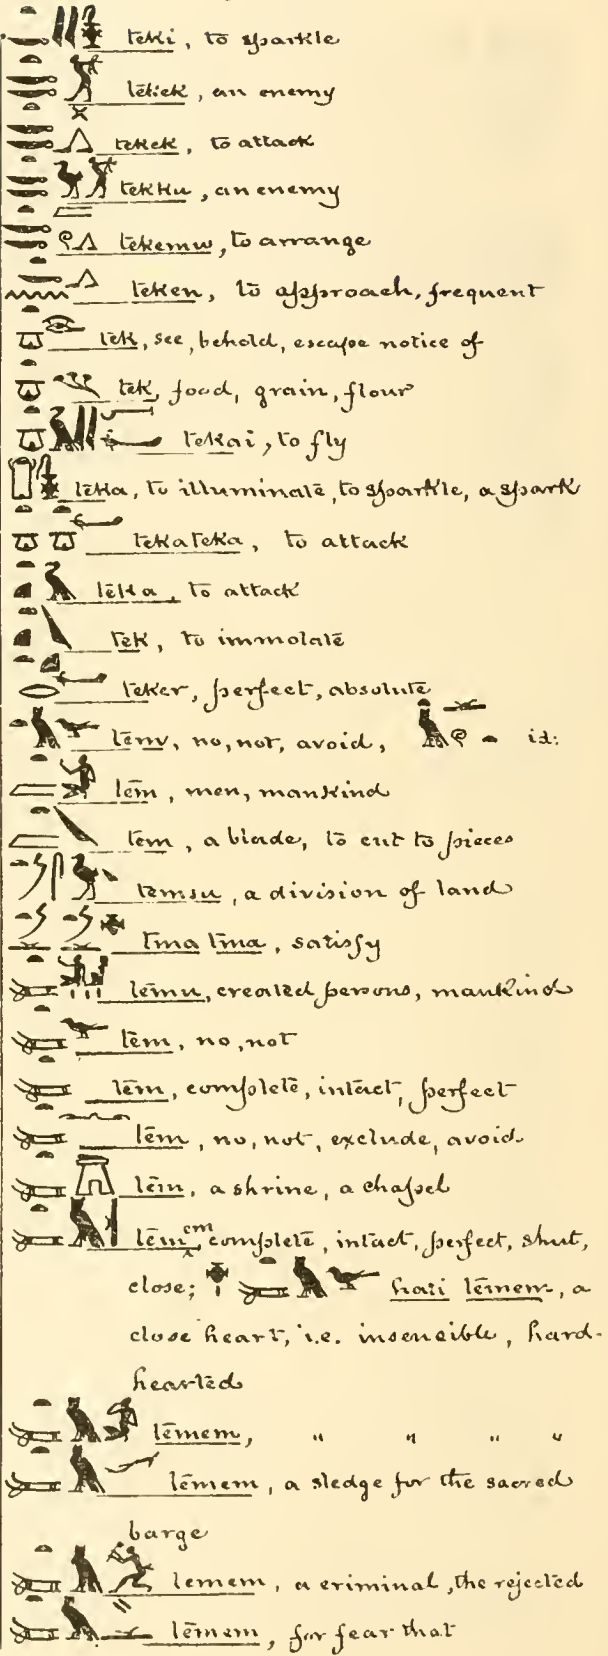 teki, to sparkle
tekek, an enemy
tekek, to attack
tekku, an enemy
tekemu, to arrange
teken, to approach, frequent
tek, see, behold, escape notice of
tek, food, grain, flour
tekai, to fly
teka, to illuminate, to sparkle, a spark
tekateka, to attack
teka, to attack
tek, to immolate
teker, perfect, absolute
tem, no, not, avoid, id:
tem, men, mankind
tem, a blade, to cut to pieces
temsu, a division of land
tma tma, satisfy
temu, created persons, mankind
tem, no, not
tem, complete, intact, perfect
tem, no, not, exclude, avoid
tem, a shrine, a chapel
tem^em complete, intact, perfect, shut,
close; hati temem, a
close heart, i.e. insensible, hard-
hearted
temem, " " " "
temem, a sledge for the sacred
barge
temem, a criminal, the rejected
temem, for fear that